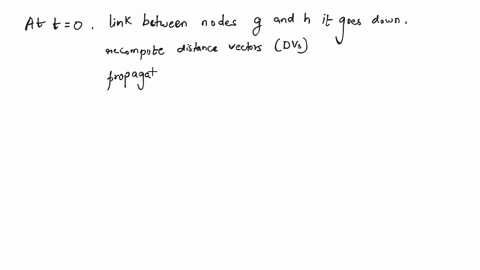 At t=0. link between nodes g and h it goes down.
recompute distance vectors (DVs)
propagat